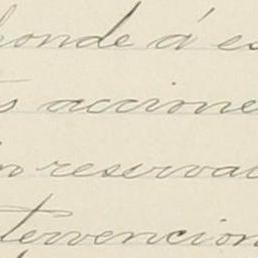 ponde á es
s acciones
n reservad
tervencion